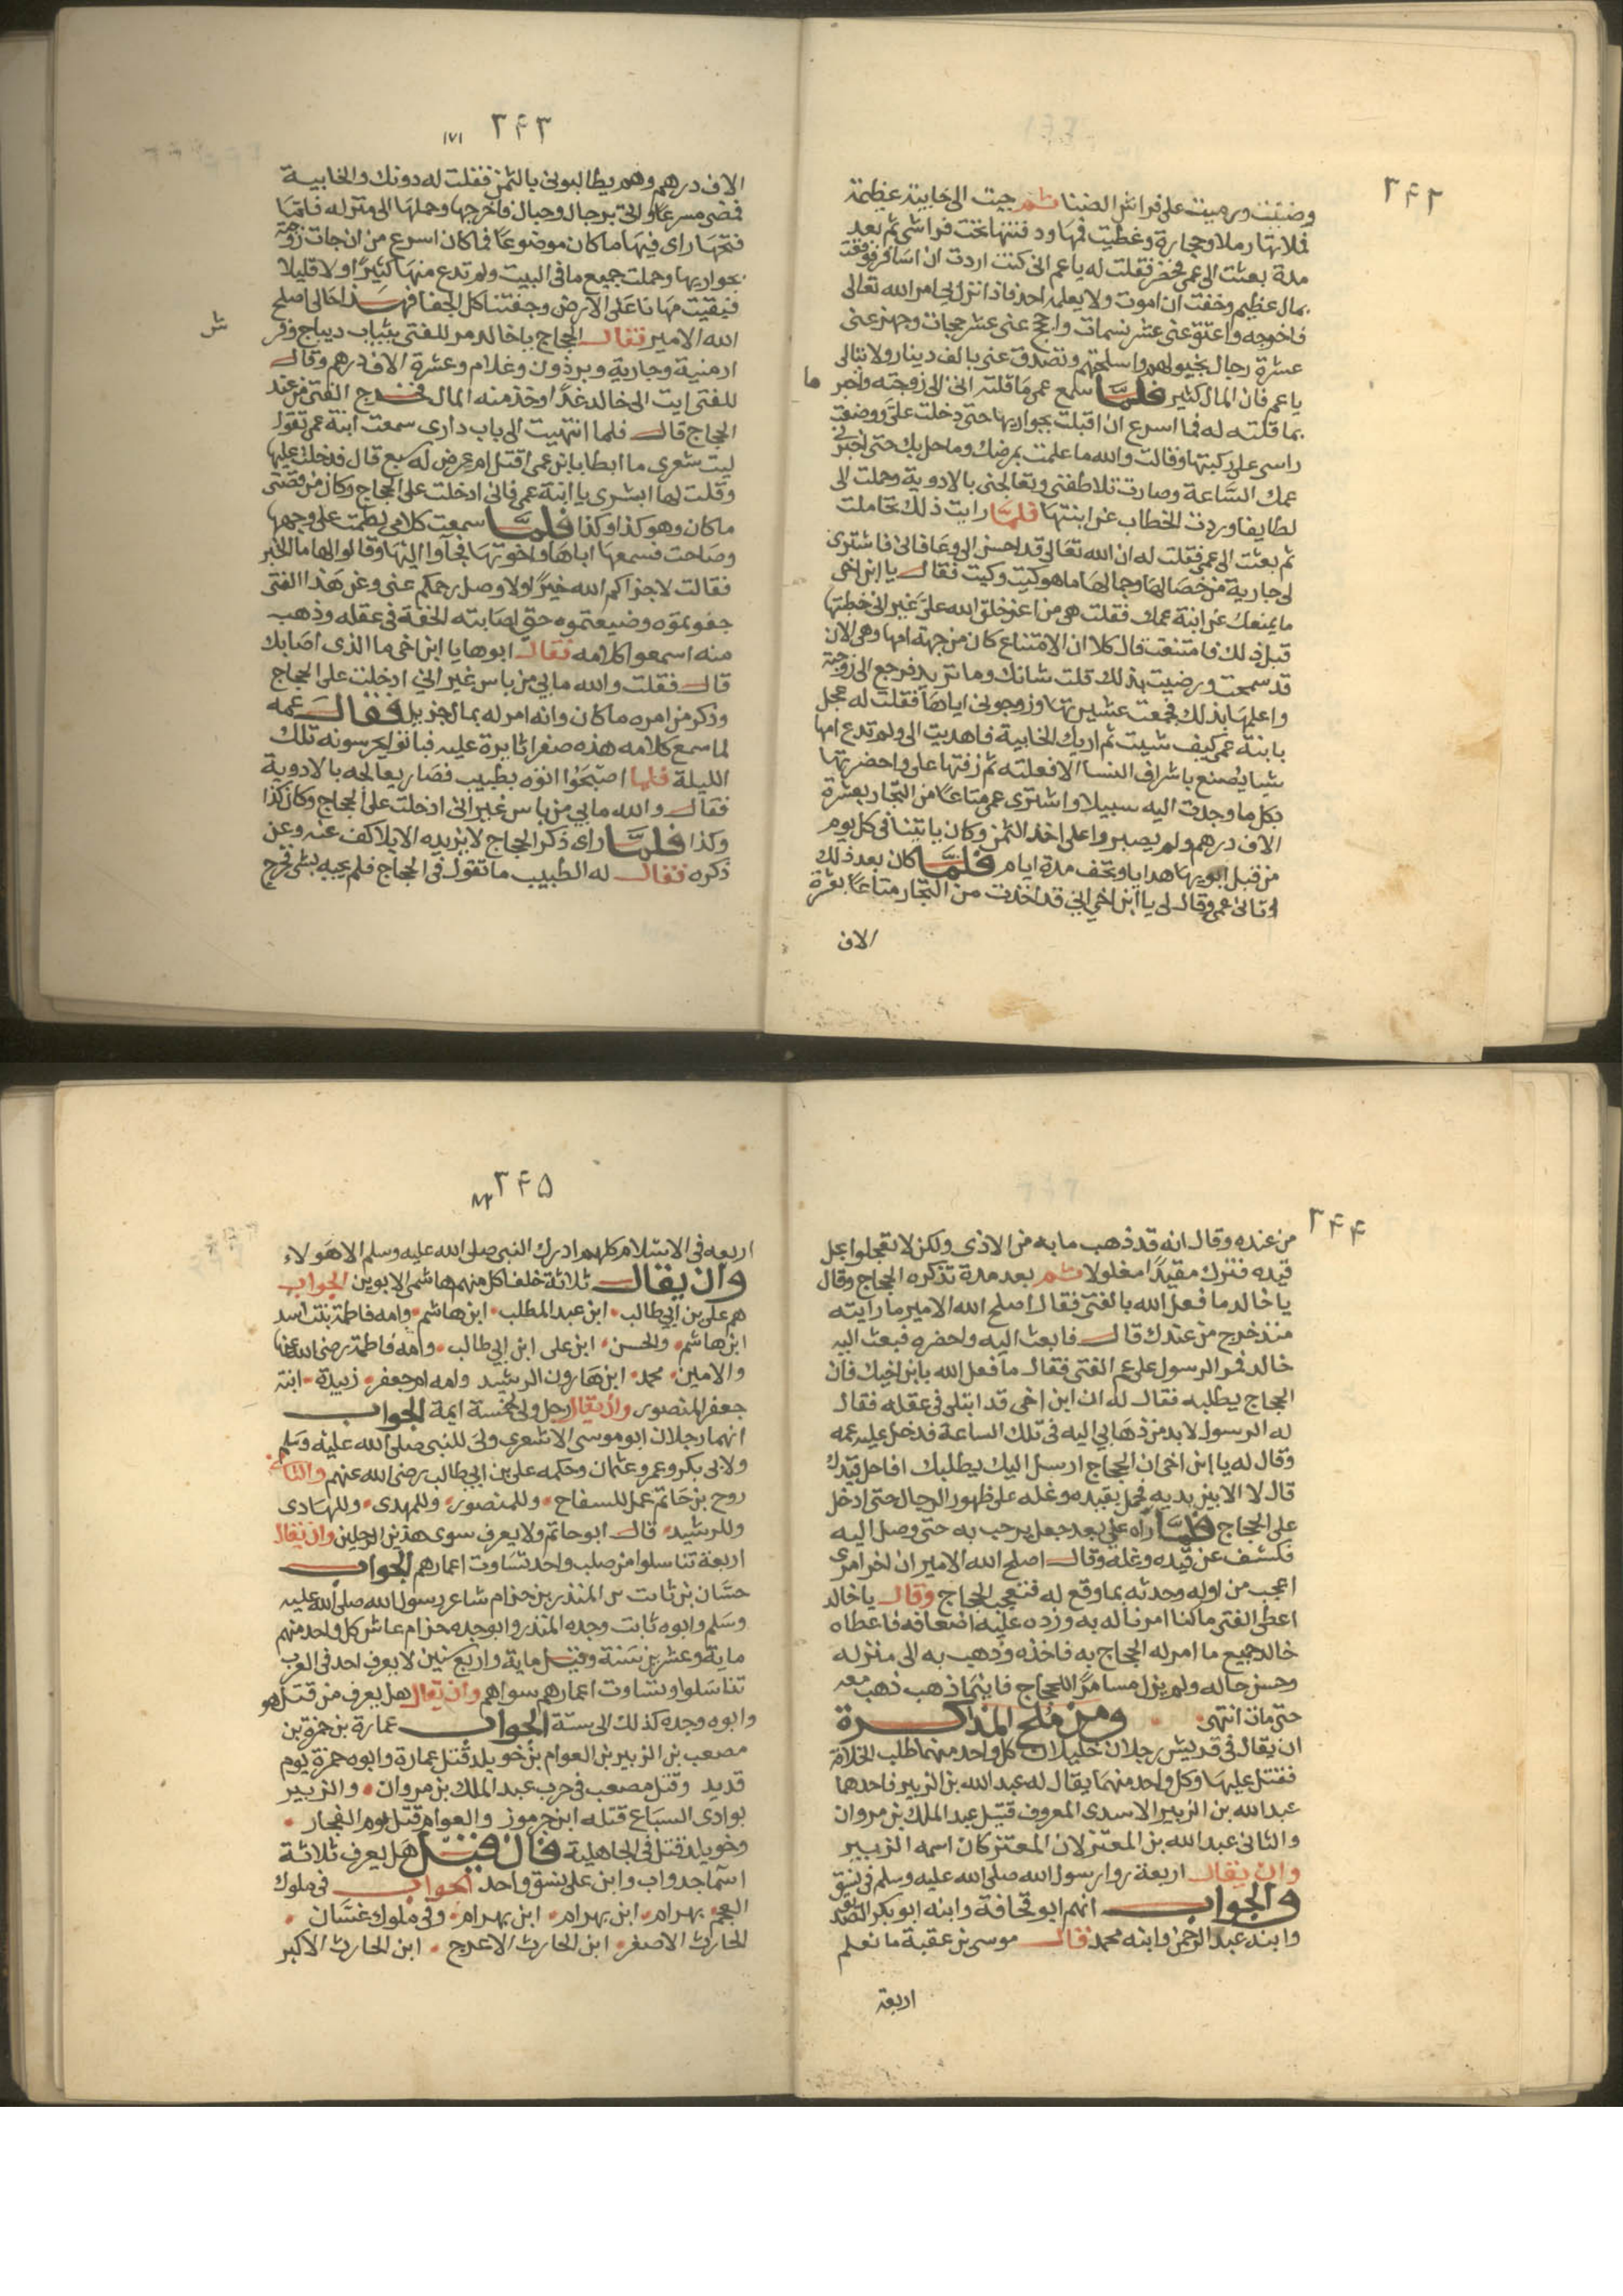 ٢٤٢
وضنيت ورميت على فراش الضنا ثم جيت الى خابية عظيمة
فملاتها رملا وحجارة وغطيت فمها ودفنتها تحت فراشى ثم بعد
مدة بعثت الى عمى فحضر فقلت له يا عم انى كنت اردت ان اسافر فوقعت
بمال عظيم وخفت ان اموت ولا يعلم به احد فاذا نزل بى امر الله تعالى
فاخرجه واعتق عنى عشر نسمات واحجج عنى عشر حجات وجهز عنى
عشرة رجال بخيولهم واسلحتهم وتصدق عنى بالف دينار ولا تبالى
يا عم فان المال كثير فلما سمع عمى ما قلته اتى الى زوجته واخبر ما
بما قلته له فما اسرع ان اقبلت بجواريها حتى دخلت على ووضعت
راسى على ركبتها وقالت والله ما علمت بمرضك وما حل بك حتى اخبرنى
عمك الساعة وصارت تلاطفنى وتعالجنى بالادوية وحملت الى
لطايفا وردت الخطاب عن ابنتها فلما رايت ذلك تحاملت
ثم بعثت الى عمى فقلت له ان الله تعالى قد احسن الى وعافانى فاشترى
لى جارية من خصالها وجمالها ما هو كيت وكيت فقال يا ابن اخى
ما يمنعك عن ابنة عمك فقلت هى من اعز خلق الله على غير انى خطبتها
قبل ذلك فامتنعت قال كلا ان الامتناع كان من جهة امها وهى الان
قد سمحت ورضيت بذلك قلت شانك وما تريد فرجع الى زوجته
واعلمها بذلك فجمعت عشيرتها وزوجونى اياها فقلت له عجل
بابنة عمى كيف شيت ثم اريك الخابية فاهديت الى ولم تدع امها
شيا يصنع باشراف النسا الا فعلته ثم زفتها على واحضرتها
بكل ما وجدت اليه سبيلا واشترى عمى متاعا من التجار بعشرة
الاف درهم ولم يصبروا على اخذ الثمن وكان ياتينا فى كل يوم
من قبل ابويها هدايا وتحف مدة ايام فلما كان بعد ذلك
اتانى عمى وقال لى يا ابن اخى انى قد اخذت من التجار متاعا بعشرة
الاف
٢٤٣ ١٧١
الاف درهم وهم يطالبونى بالثمن فقلت له دونك والخابية
فمضى مسرعا واتى برجال وحبال فاخرجها وحملها الى منزله فلما
فتحها راى فيها ما كان موضوعا فما كان اسرع من ان جات زوجته
بجواريها وحملت جميع ما فى البيت ولم تدع منها كثيرا ولا قليلا
فبقيت مهانا على الارض وجفتنا كل الجفا فهذا حالى اصلح
الله الامير فقال الحجاج يا خالد مر للفتى بثياب ديباج وفر ش
ارمنية وجارية وبرذون وغلام وعشرة الاف درهم وقال
للفتى ايت الى خالد غدا وخذ منه المال فخرج الفتى من عند
الحجاج قال فلما انتهيت الى باب دارى سمعت ابنة عمى تقول
ليت شعرى ما ابطا بابن عمى اقتل ام عرض له سبع قال فدخلت عليها
وقلت لها ابشرى يا ابنة عمى فانى ادخلت على الحجاج وكان من قصتى
ما كان وهو كذا وكذا فلما سمعت كلامى لطمت على وجهها
وصاحت فسمعها اباها واخوتها فجآوا اليها وقالوا لها ما الخبر
فقالت لاجزاكم الله خيرا ولا وصل رحمكم عنى وعن هذا الفتى
جفوتموه وضيعتموه حتى اصابته الخفة فى عقله وذهب
منه اسمعوا كلامه فقال ابوها يا ابن اخى ما الذى اصابك
قال فقلت والله ما بى من باس غير انى ادخلت على الحجاج
وذكر من امره ما كان وانه امر له بمال جزيل فقال عمه
لما سمع كلامه هذه صفرا ثايرة عليه فباتوا يحرسونه تلك
الليلة فلما اصبحوا اتوه بطبيب فصار يعالجه بالادوية
فقال والله ما بى من باس غير انى ادخلت على الحجاج وكان كذا
وكذا فلما راى ذكر الحجاج لا يزيده الا بلا كف عنه وعن
ذكره فقال له الطبيب ما تقول فى الحجاج فلم يجبه بشى فخرج
٢٤٤
من عنده وقال انه قد ذهب ما به من الاذى ولكن لا تعجلوا بحل
قيده فترك مقيدا مغلولا ثم بعد مدة تذكره الحجاج وقال
يا خالد ما فعل الله بالفتى فقال اصلح الله الامير ما رايته
منذ خرج من عندك قال فابعث اليه واحضره فبعث اليه
خالد فمر الرسول على عم الفتى فقال ما فعل الله بابن اخيك فان
الحجاج يطلبه فقال له ان ابن اخى قد ابتلى فى عقله فقال
له الرسول لا بد من ذهابى اليه فى تلك الساعة فدخل عليه عمه
وقال له يا ابن اخى ان الحجاج ارسل اليك يطلبك افاحل قيدك
قال لا الا بين يديه فحمل بقيده وغله على ظهور الرجال حتى ادخل
على الحجاج فلما راه على بعد جعل يرحب به حتى وصل اليه
فكشف عن قيده وغله وقال اصلح الله الامير ان اخر امرى
اعجب من اوله وحدثه بما وقع له فتعجب الحجاج وقال يا خالد
اعط الفتى ما كنا امرنا له به وزده عليه اضعافه فاعطاه
خالد جميع ما امر له الحجاج به فاخذه وذهب به الى منزله
وحسن حاله ولم يزل مسامرا للحجاج فاينما ذهب ذهب معه
حتى مات انتهى ومن ملح المذاكرة
ان يقال فى قريش رجلان خليلان كل واحد منهما طلب الخلافة
فقتل عليها وكل واحد منهما يقال له عبد الله بن الزبير فاحدهما
عبد الله بن الزبير الاسدى المعروف قتيل عبد الملك بن مروان
والثانى عبد الله بن المعتز لان المعتز كان اسمه الزبير
وان يقال اربعة راوا رسول الله صلى الله عليه وسلم فى نسق
والجواب انهم ابو قحافة وابنه ابو بكر الصديق
وابنه عبد الرحمن وابنه محمد قال موسى بن عقبة ما نعلم
اربعة
٢٤٥
اربعه فى الاسلام كلهم ادرك النبى صلى الله عليه وسلم الا هولاء
وان يقال ثلاثة خلفا كل منهم هاشمى الابوين الجواب
هم على بن ابى طالب ابن عبد المطلب ابن هاشم وامه فاطمة بنت اسد
ابن هاشم والحسن ابن على ابن ابى طالب وامه فاطمة رضى الله عنها
والامين محمد ابن هارون الرشيد وامه ام جعفر زبيدة ابنة
جعفر المنصور وان يقال رجل ولى لخمسة ايمة الجواب
انهما رجلان ابو موسى الاشعرى ولى للنبى صلى الله عليه وسلم
ولابى بكر وعمر وعثمان وحكمه على بن ابى طالب رضى الله عنهم والثانى
روح بن حاتم عمل للسفاح وللمنصور وللمهدى وللهادى
وللرشيد قال ابو حاتم ولا يعرف سوى هذين الرجلين وان يقال
اربعة تناسلوا من صلب واحد تساوت اعمارهم الجواب
حسان بن ثابت بن المنذر بن حزام شاعر رسول الله صلى الله عليه
وسلم وابوه ثابت وجده المنذر وابو جده حزام عاش كل واحد منهم
ماية وعشرين سنة وقيل ماية واربع سنين لا يعرف احد فى العرب
تناسلوا وتساوت اعمارهم سواهم وان يقال هل يعرف من قتل هو
وابوه وجده كذلك الى ستة الجواب عمارة بن حمزة بن
مصعب بن الزبير بن العوام بن خويلد قتل عمارة وابوه حمزة يوم
قديد وقتل مصعب فى حرب عبد الملك بن مروان والزبير
بوادى السباع قتله ابن جرموز والعوام قتل يوم الفجار
وخويلد قتل فى الجاهلية فان قيل هل يعرف ثلاثة
اسما جد واب وابن على نسق واحد الجواب فى ملوك
العجم بهرام ابن بهرام ابن بهرام وفى ملوك غسان
الحارث الاصغر ابن الحارث الاعرج ابن الحارث الاكبر